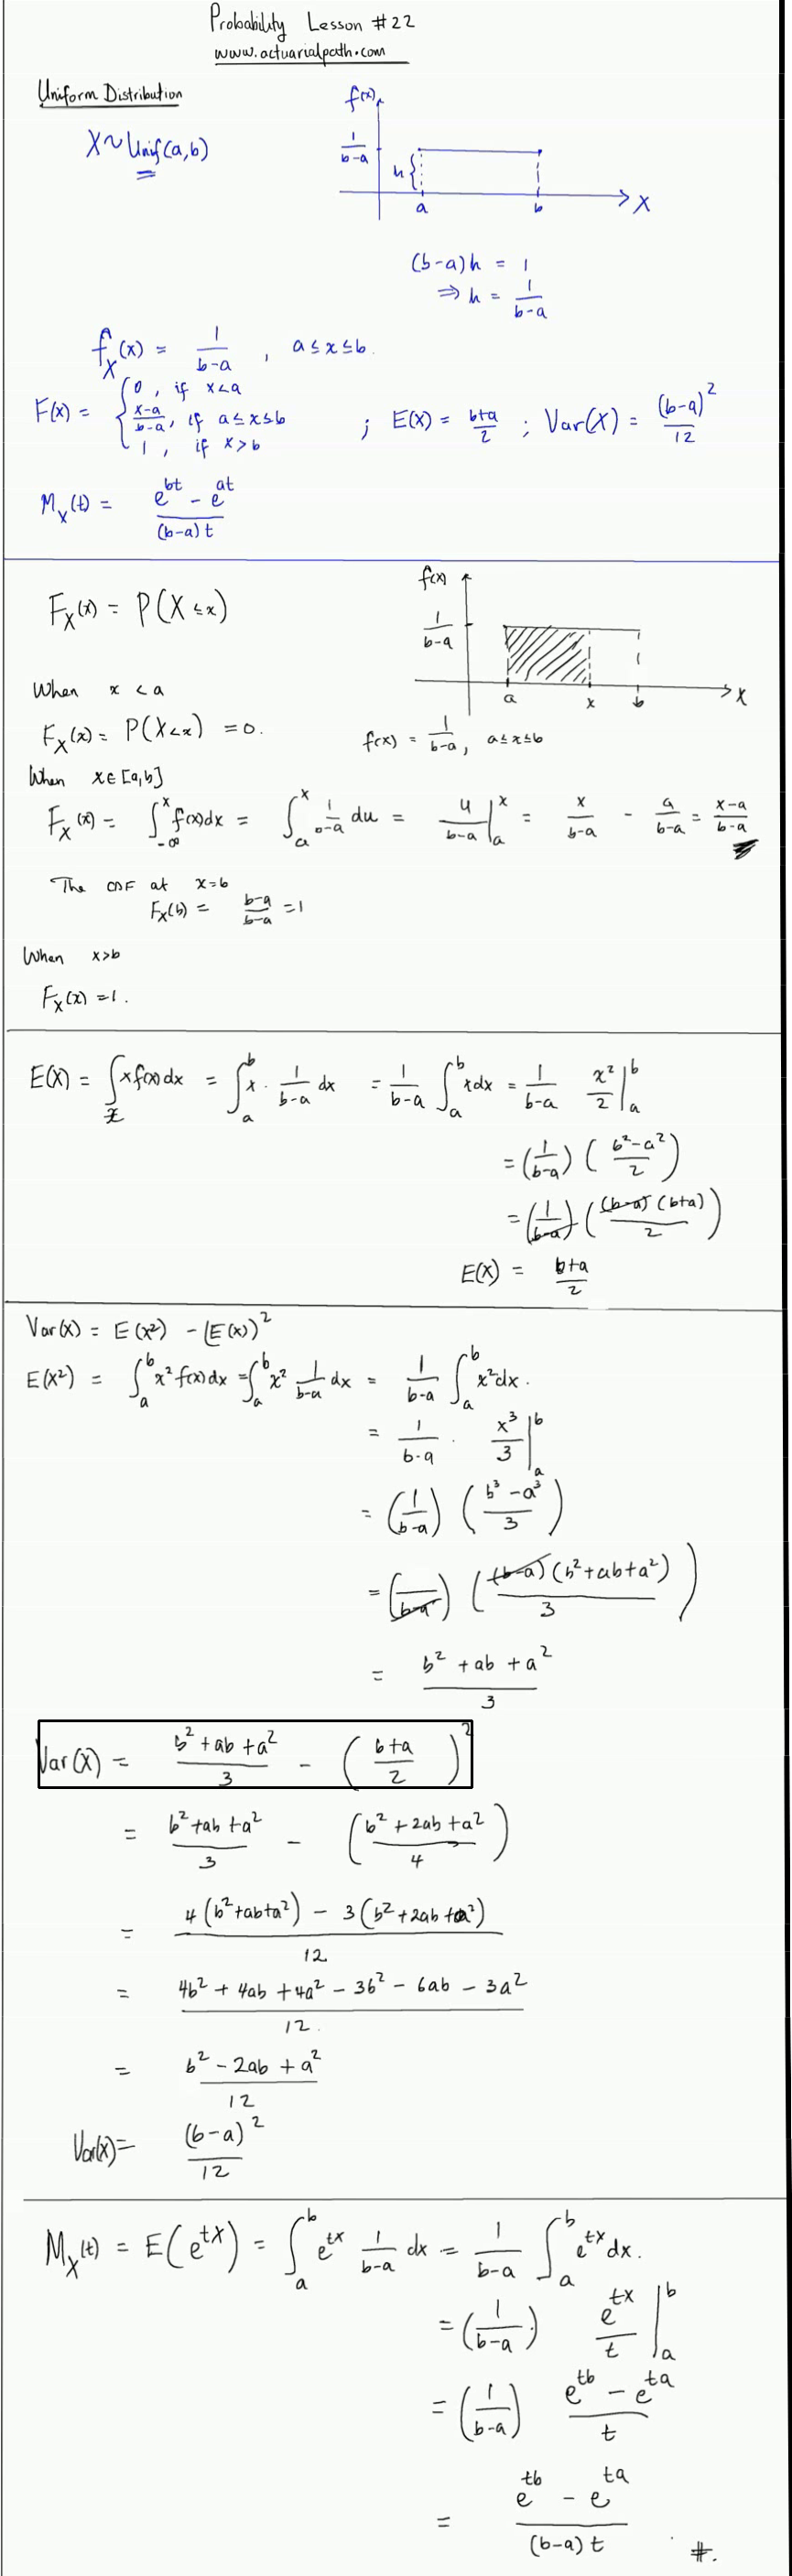 Probability Lesson #22
www.actuarialpath.com
Uniform Distribution
X~Unif(a,b)
f(x)
1/(b-a)
h{
a b X
(b-a)h = 1
⇒ h = 1/(b-a)
f_X(x) = 1/(b-a) , a≤x≤b.
F(x) = { 0, if x<a
(x-a)/(b-a), if a≤x≤b ; E(X) = (b+a)/2 ; Var(X) = (b-a)^2/12
1, if x>b
M_X(t) = (e^{bt} - e^{at})/((b-a)t)
F_X(x) = P(X≤x)
f(x)
1/(b-a)
a x b X
f(x) = 1/(b-a), a≤x≤b
When x<a
F_X(x) = P(X<x) = 0.
When x∈[a,b]
F_X(x) = ∫_{-∞}^{x} f(x)dx = ∫_a^x 1/(b-a) du = u/(b-a) |_a^x = x/(b-a) - a/(b-a) = (x-a)/(b-a)
The CDF at x=b
F_X(b) = (b-a)/(b-a) = 1
When x>b
F_X(x) = 1.
E(X) = ∫_x x f(x)dx = ∫_a^b x · 1/(b-a) dx = 1/(b-a) ∫_a^b xdx = 1/(b-a) x^2/2 |_a^b
= (1/(b-a)) ((b^2-a^2)/2)
= (1/(b-a)) ((b-a)(b+a)/2)
E(X) = (b+a)/2
Var(X) = E(X^2) - (E(X))^2
E(X^2) = ∫_a^b x^2 f(x)dx = ∫_a^b x^2 1/(b-a) dx = 1/(b-a) ∫_a^b x^2 dx.
= 1/(b-a) · x^3/3 |_a^b
= (1/(b-a)) ((b^3-a^3)/3)
= (1/(b-a)) ((b-a)(b^2+ab+a^2)/3)
= (b^2+ab+a^2)/3
Var(X) = (b^2+ab+a^2)/3 - ((b+a)/2)^2
= (b^2+ab+a^2)/3 - ((b^2+2ab+a^2)/4)
= (4(b^2+ab+a^2) - 3(b^2+2ab+a^2))/12
= (4b^2+4ab+4a^2-3b^2-6ab-3a^2)/12.
= (b^2-2ab+a^2)/12
Var(X) = (b-a)^2/12
M_X(t) = E(e^{tX}) = ∫_a^b e^{tx} 1/(b-a) dx = 1/(b-a) ∫_a^b e^{tx} dx.
= (1/(b-a)) e^{tx}/t |_a^b
= (1/(b-a)) (e^{tb} - e^{ta})/t
= (e^{tb} - e^{ta})/((b-a)t) #.